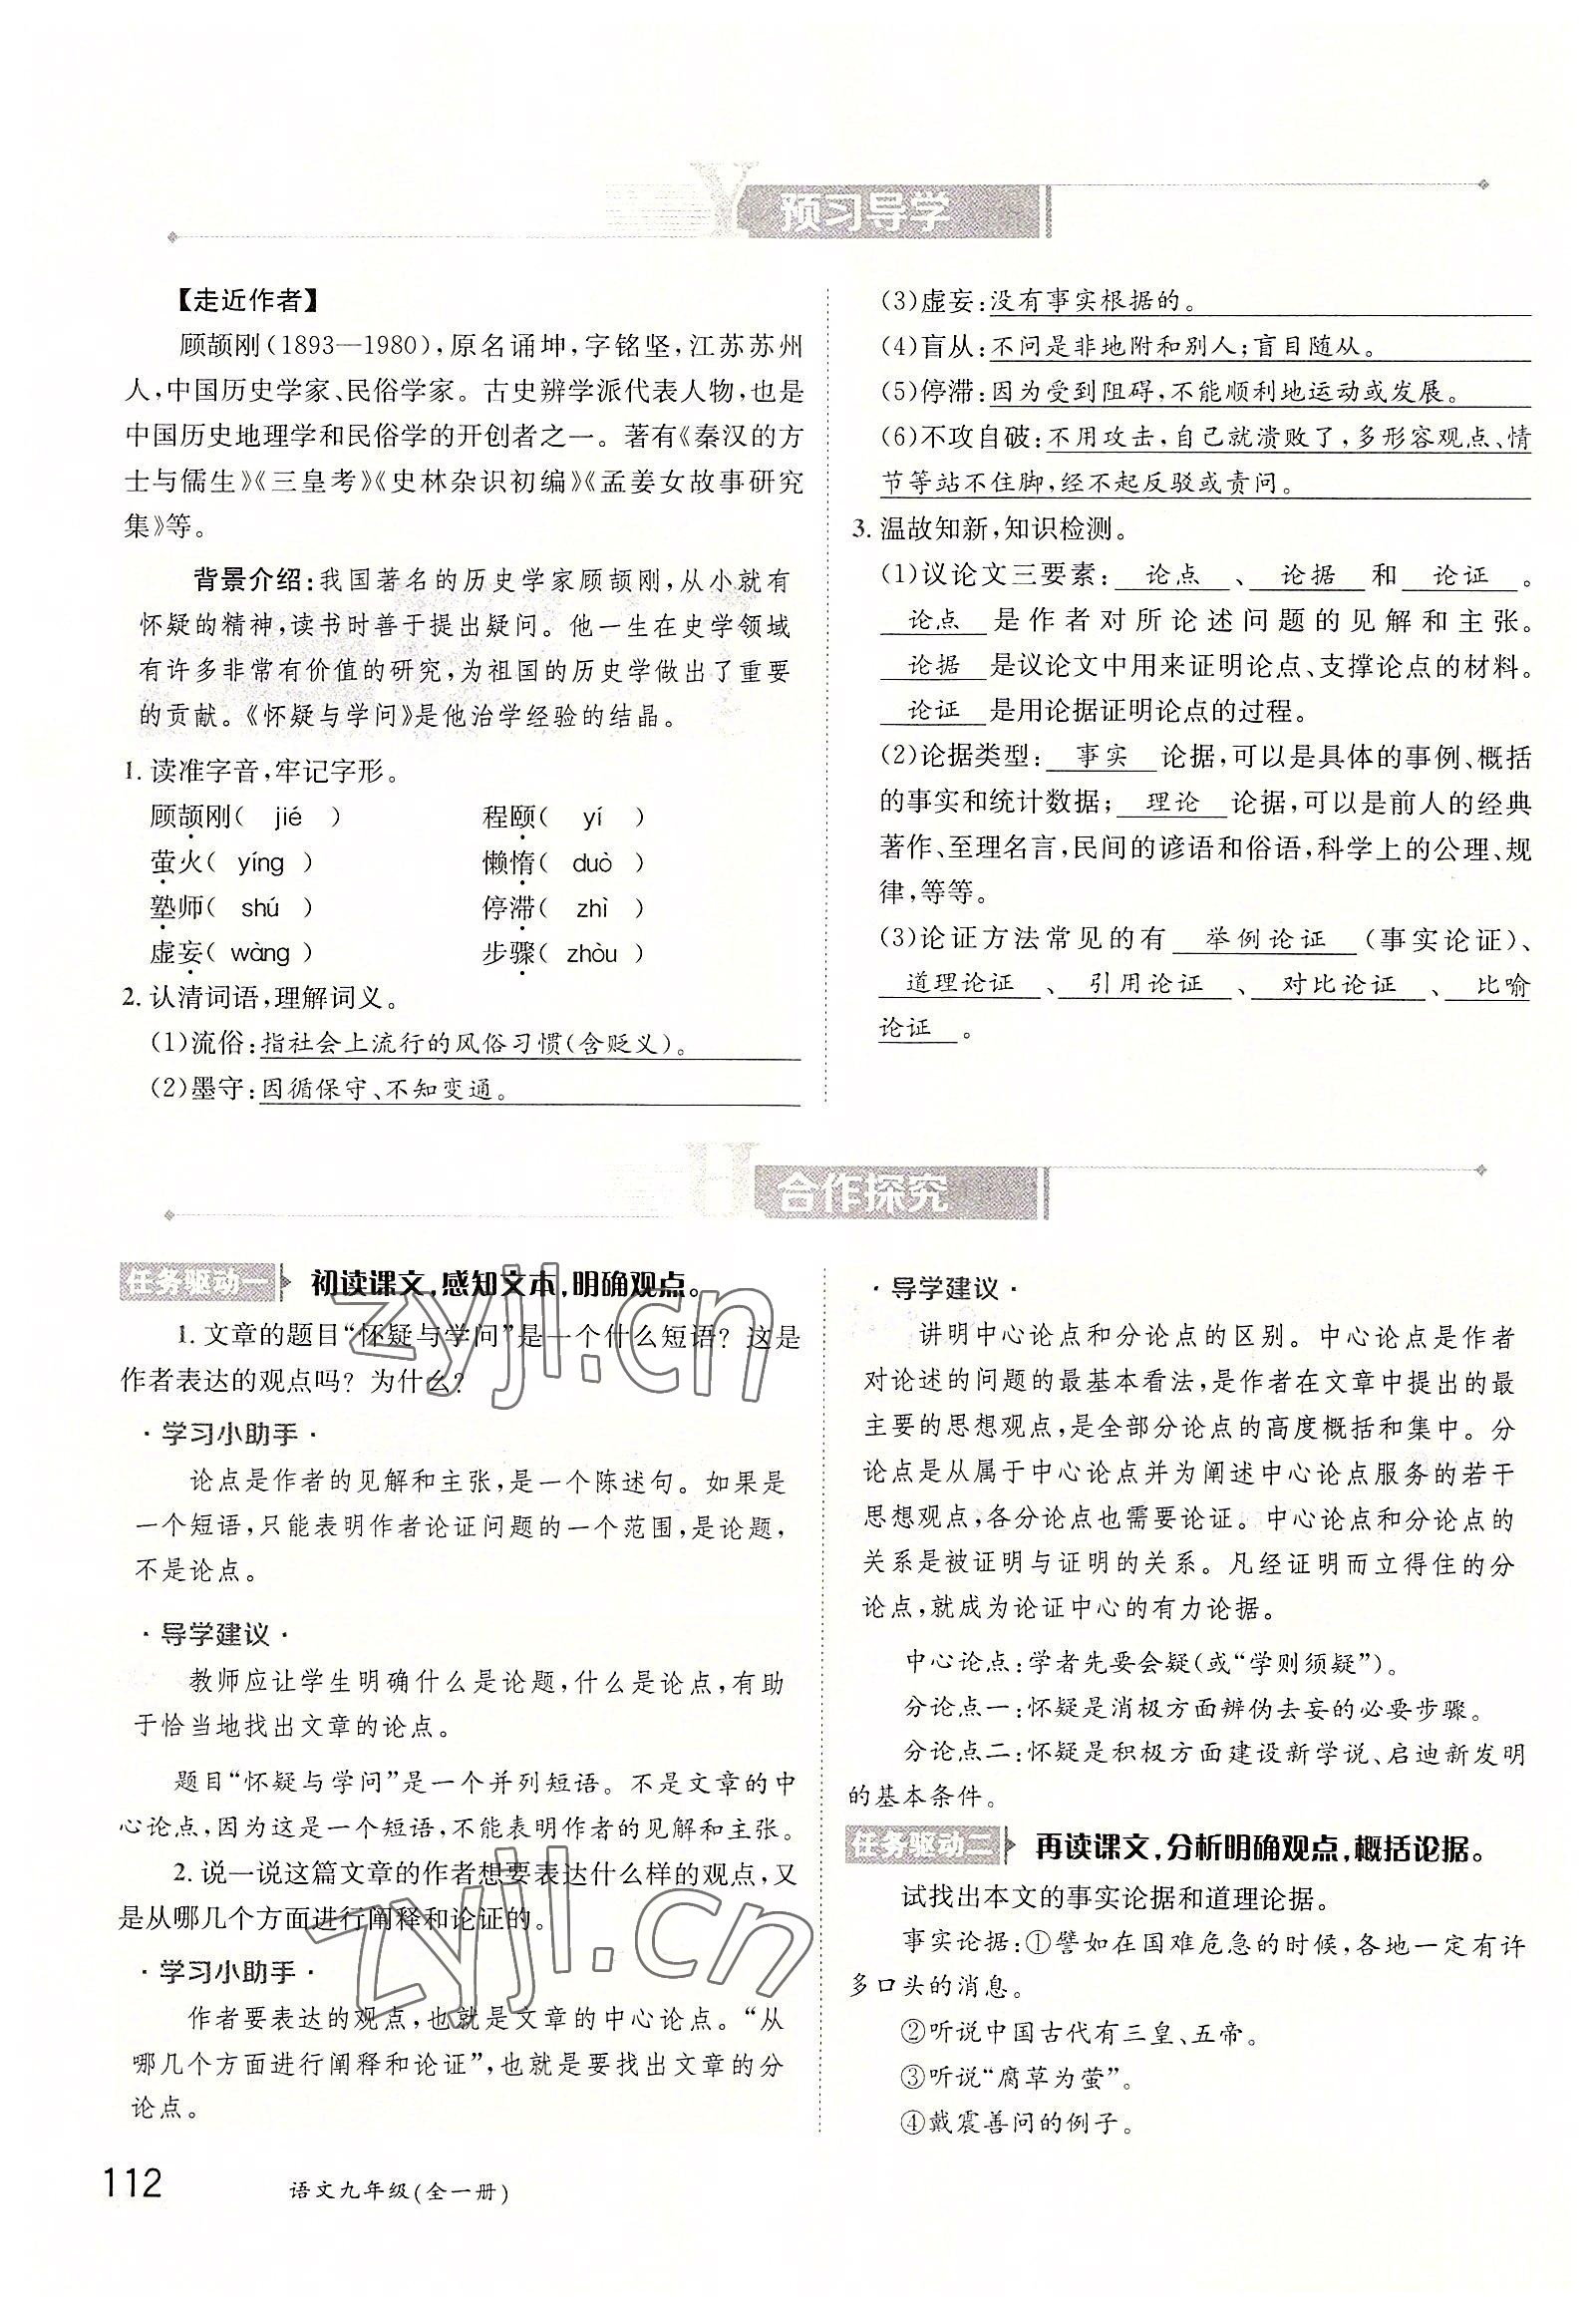 预习导学
【走近作者】
顾颉刚(1893—1980),原名诵坤,字铭坚,江苏苏州
人,中国历史学家、民俗学家。古史辨学派代表人物,也是
中国历史地理学和民俗学的开创者之一。著有《秦汉的方
士与儒生》《三皇考》《史林杂识初编》《孟姜女故事研究
集》等。
背景介绍:我国著名的历史学家顾颉刚,从小就有
怀疑的精神,读书时善于提出疑问。他一生在史学领域
有许多非常有价值的研究,为祖国的历史学做出了重要
的贡献。《怀疑与学问》是他治学经验的结晶。
1. 读准字音,牢记字形。
顾颉刚( jié ) 程颐( yí )
萤火( yíng ) 懒惰( duò )
塾师( shú ) 停滞( zhì )
虚妄( wàng ) 步骤( zhòu )
2. 认清词语,理解词义。
(1)流俗:指社会上流行的风俗习惯(含贬义)。
(2)墨守:因循保守、不知变通。
(3)虚妄:没有事实根据的。
(4)盲从:不问是非地附和别人;盲目随从。
(5)停滞:因为受到阻碍,不能顺利地运动或发展。
(6)不攻自破:不用攻击,自己就溃败了,多形容观点、情
节等站不住脚,经不起反驳或责问。
3. 温故知新,知识检测。
(1)议论文三要素: 论点 、 论据 和 论证 。
论点 是作者对所论述问题的见解和主张。
论据 是议论文中用来证明论点、支撑论点的材料。
论证 是用论据证明论点的过程。
(2)论据类型: 事实 论据,可以是具体的事例、概括
的事实和统计数据; 理论 论据,可以是前人的经典
著作、至理名言,民间的谚语和俗语,科学上的公理、规
律,等等。
(3)论证方法常见的有 举例论证 (事实论证)、
道理论证 、 引用论证 、 对比论证 、 比喻
论证 。
合作探究
任务驱动一 初读课文,感知文本,明确观点。
1. 文章的题目“怀疑与学问”是一个什么短语? 这是
作者表达的观点吗? 为什么?
·学习小助手·
论点是作者的见解和主张,是一个陈述句。如果是
一个短语,只能表明作者论证问题的一个范围,是论题,
不是论点。
·导学建议·
教师应让学生明确什么是论题,什么是论点,有助
于恰当地找出文章的论点。
题目“怀疑与学问”是一个并列短语。不是文章的中
心论点,因为这是一个短语,不能表明作者的见解和主张。
2. 说一说这篇文章的作者想要表达什么样的观点,又
是从哪几个方面进行阐释和论证的。
·学习小助手·
作者要表达的观点,也就是文章的中心论点。“从
哪几个方面进行阐释和论证”,也就是要找出文章的分
论点。
·导学建议·
讲明中心论点和分论点的区别。中心论点是作者
对论述的问题的最基本看法,是作者在文章中提出的最
主要的思想观点,是全部分论点的高度概括和集中。分
论点是从属于中心论点并为阐述中心论点服务的若干
思想观点,各分论点也需要论证。中心论点和分论点的
关系是被证明与证明的关系。凡经证明而立得住的分
论点,就成为论证中心的有力论据。
中心论点:学者先要会疑(或“学则须疑”)。
分论点一:怀疑是消极方面辨伪去妄的必要步骤。
分论点二:怀疑是积极方面建设新学说、启迪新发明
的基本条件。
任务驱动二 再读课文,分析明确观点,概括论据。
试找出本文的事实论据和道理论据。
事实论据:①譬如在国难危急的时候,各地一定有许
多口头的消息。
②听说中国古代有三皇、五帝。
③听说“腐草为萤”。
④戴震善问的例子。
zyjl.cn
zyjl.cn
112 语文九年级(全一册)